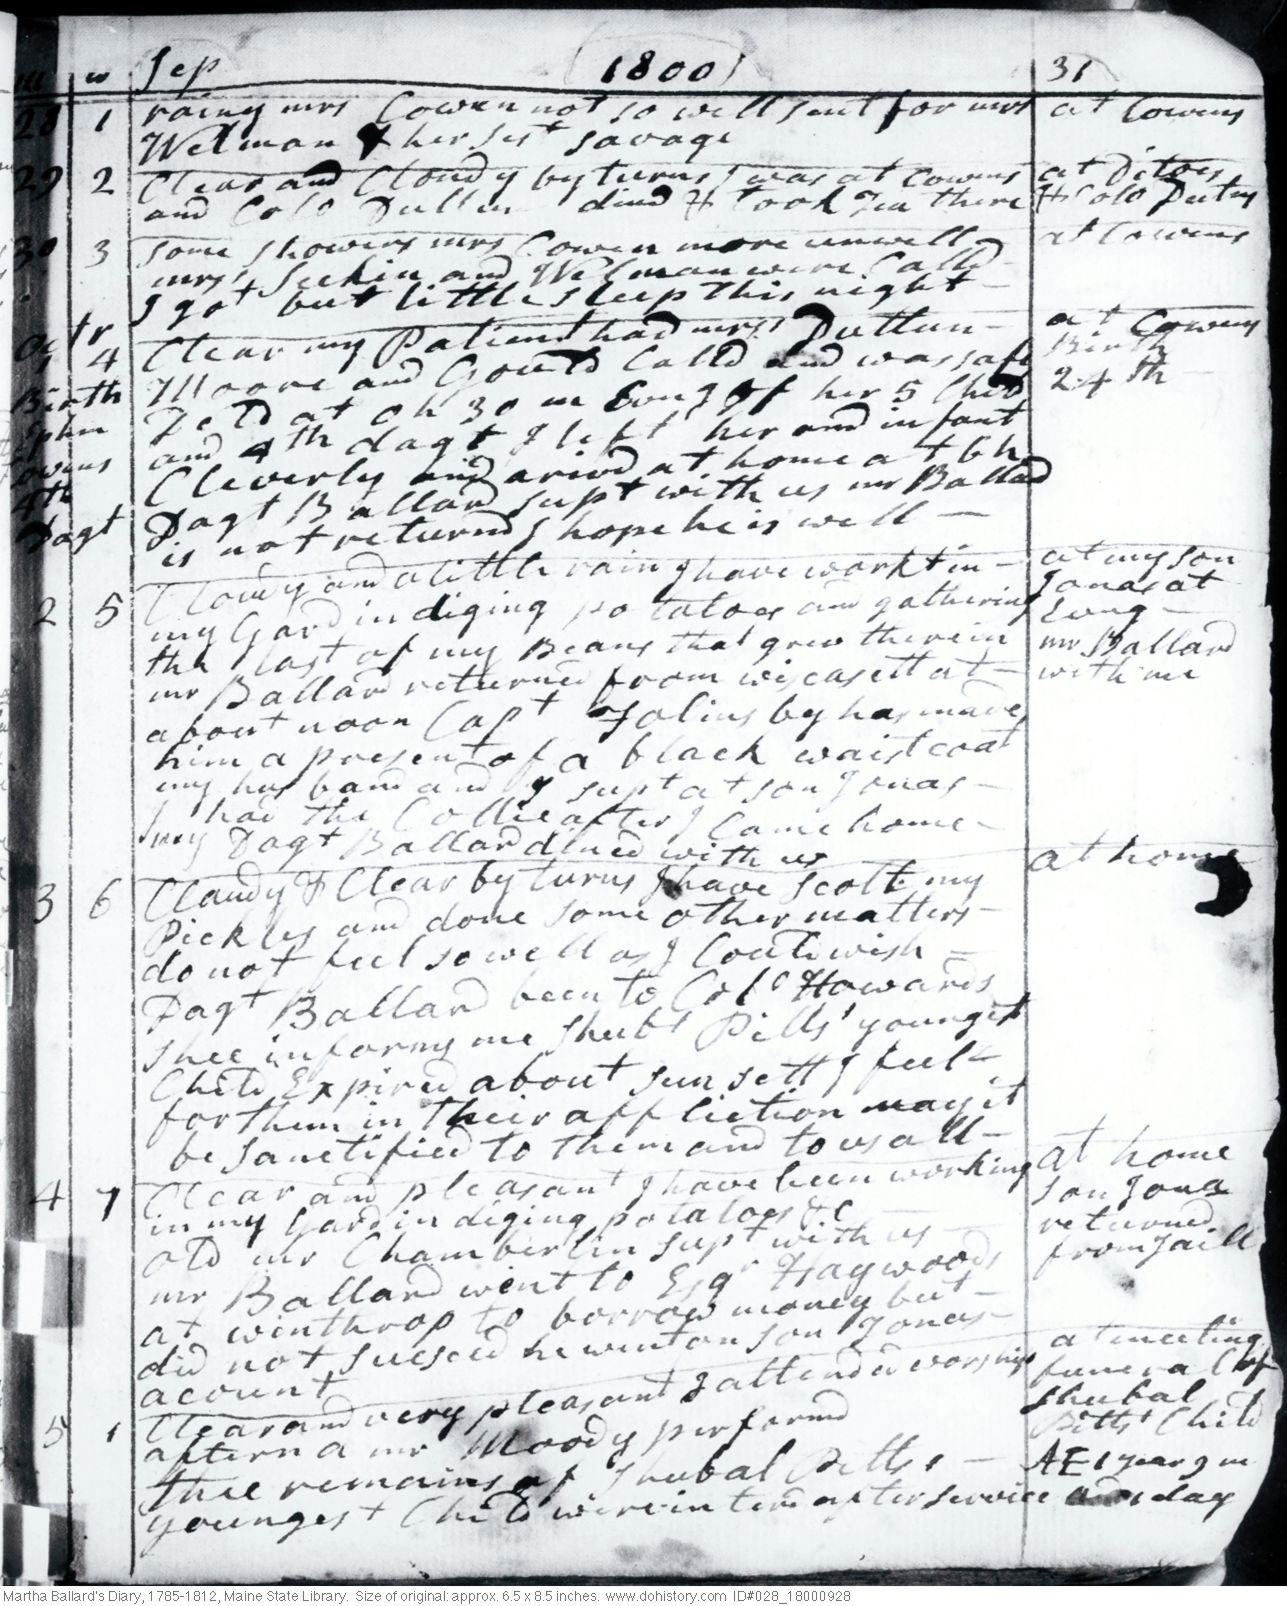 m w Sep 1800 31
28 1 rainy mrs Cowen not so well sent for mrs at Cowens
Welman & her sist savage
29 2 Clear and Cloudy by turns I was at Cowens at Ditoes
and Colo Duttuns dind & took Tea there & Colo Duttns
30 3 some showers mrs Cowen more unwell at Cowens
mrss Seekin and Welman were Calld
I got but little sleep This night —
Octr 4 Clear my Patient had mrss Duttun — at Cowens
Moore and Gould Calld and was safe Birth
Birth DeLd at 0 h 30 m Evng of her 5 Child 24th —
Ephm and 4th dagt I left her and infant
Cowens Cleverly and arivd at home at 6 h
4th Dagt Ballard supt with us mr Ballad
Dagt is not returnd I hope he is well —
2 5 Cloudy and a little rain I have workt in — at my son
my Gardin diging potatoes and gathering Jonas at
the last of my Beans that grew therein Evng —
mr Ballard returned from wiscasett at — mr Ballard
about noon Capt Jolins by has made with me
him a present of a black waistcoat
my husband and I supt at son Jonas —
I had the Collic after I Came home —
my Dagt Ballard dined with us
3 6 Claudy & Clear by turns I have scolt my at home
Pickles and done some other matters —
do not feel so well as I Could wish —
Dagt Ballard been to Colo Howards
shee informs me Shubl Pitts' youngest
Child Expired about sun sett I feel
for them in Their affliction may it
be sanctified to them and to us all —
4 7 Clear and pleasant I have been working at home
in my Gardin diging potatoes &c son Jonas
old mr Chamberlin supt with us — returned
mr Ballard went to Esqr Haywoods from Jaill
at winthrop to borrow money but —
did not sucseed he went on son Jonas —
acount
5 1 Clear and very pleasant I attended worship at meeting
aftern a mr Moody performd funeral of
thee remains of Shubal Pitts, — Shubal
youngest Child were interd after service Pitts' Child
AE 1 year 9 m
and 1 day
Martha Ballard's Diary, 1785-1812, Maine State Library. Size of original: approx. 6.5 x 8.5 inches. www.dohistory.com ID#028_18000928